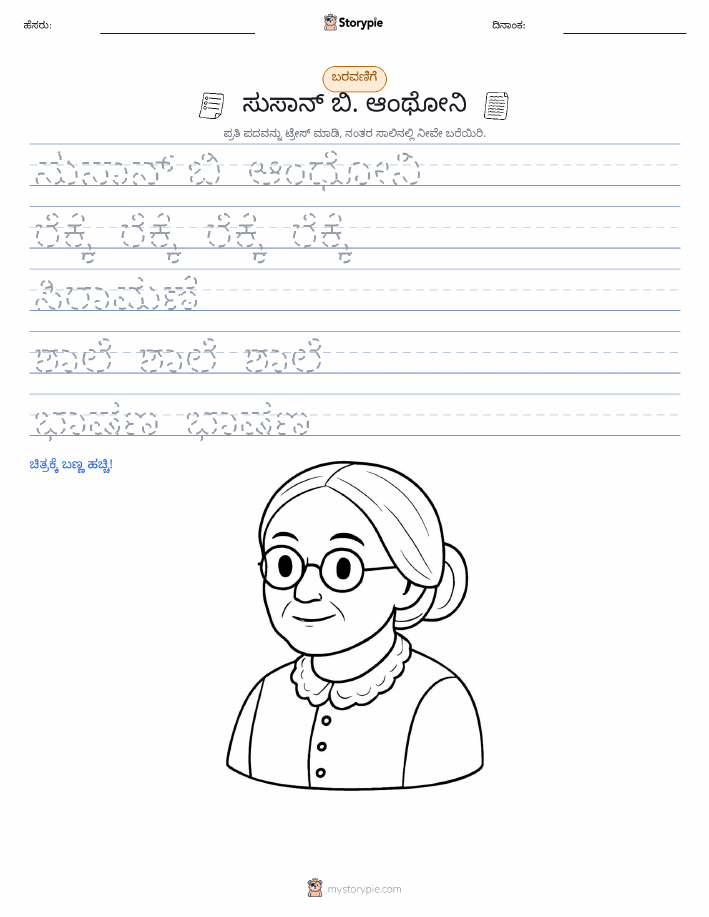 ಹೆಸರು: Storypie ದಿನಾಂಕ:
ಬರವಣಿಗೆ
ಸುಸಾನ್ ಬಿ. ಆಂಥೋನಿ
ಪ್ರತಿ ಪದವನ್ನು ಟ್ರೇಸ್ ಮಾಡಿ, ನಂತರ ಸಾಲಿನಲ್ಲಿ ನೀವೇ ಬರೆಯಿರಿ.
ಸುಸಾನ್ ಬಿ ಆಂಥೋನಿ
ಶಾಲೆ ಶಾಲೆ ಶಾಲೆ
ಭಾಷಣ ಭಾಷಣ
ಚಿತ್ರಕ್ಕೆ ಬಣ್ಣ ಹಚ್ಚಿ!
mystorypie.com